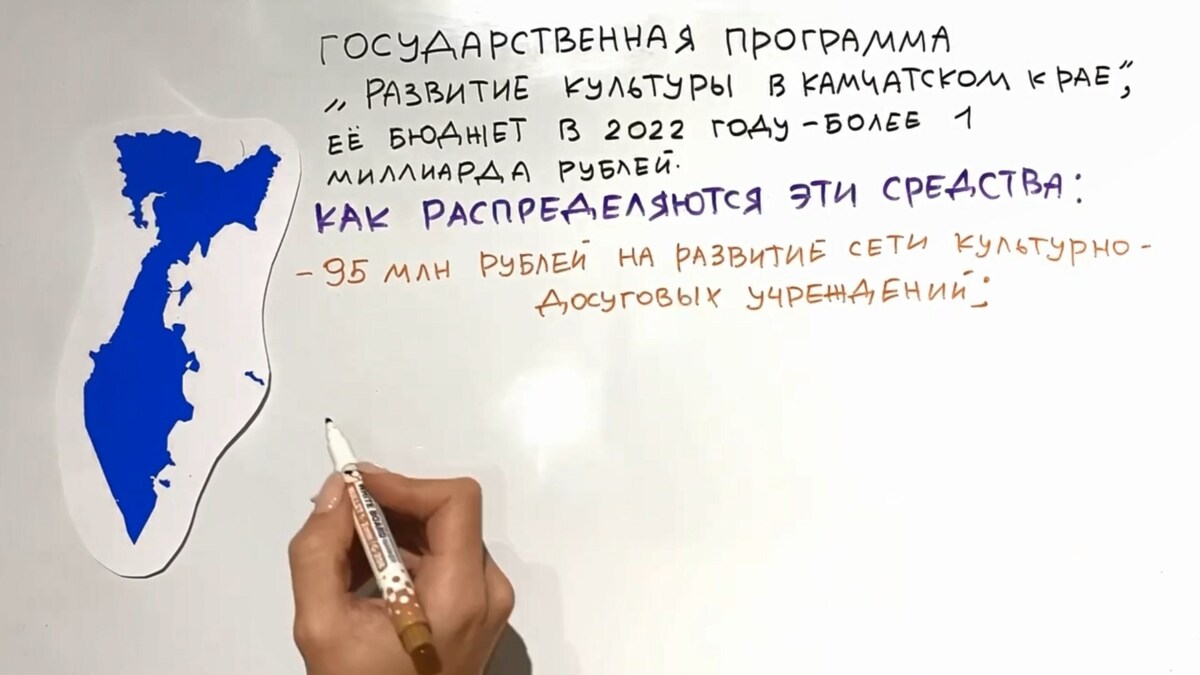 ГОСУДАРСТВЕННАЯ ПРОГРАММА
„РАЗВИТИЕ КУЛЬТУРЫ В КАМЧАТСКОМ КРАЕ”,
ЕЁ БЮДЖЕТ В 2022 ГОДУ – БОЛЕЕ 1
МИЛЛИАРДА РУБЛЕЙ.
КАК РАСПРЕДЕЛЯЮТСЯ ЭТИ СРЕДСТВА:
- 95 МЛН РУБЛЕЙ НА РАЗВИТИЕ СЕТИ КУЛЬТУРНО -
ДОСУГОВЫХ УЧРЕЖДЕНИЙ;
WHITE BOARD